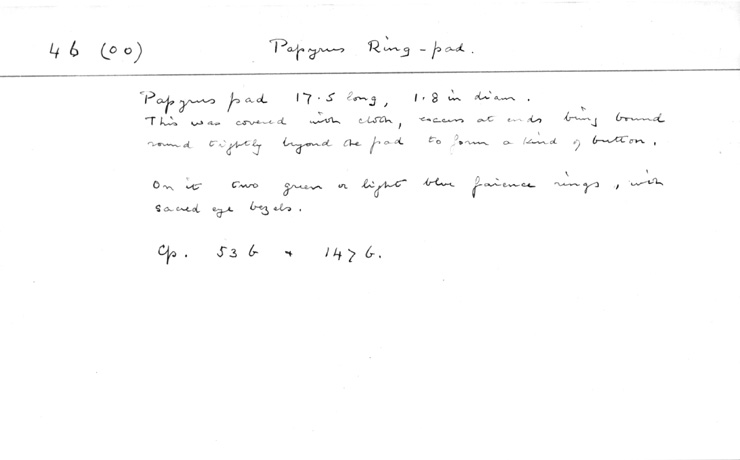 46 (00) Papyrus Ring-pad.
Papyrus pad 17.5 long, 1.8 in diam.
This was covered with cloth, excess at ends being bound
round tightly beyond the pad to form a kind of button.
On it two green or light blue faience rings, with
sacred eye bezels.
Cp. 53 b + 147 b.